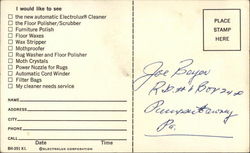 I would like to see
☐ the new automatic Electrolux® Cleaner
☐ the Floor Polisher/Scrubber
☐ Furniture Polish
☐ Floor Waxes
☐ Wax Stripper
☐ Mothproofer
☐ Rug Washer and Floor Polisher
☐ Moth Crystals
☐ Power Nozzle for Rugs
☐ Automatic Cord Winder
☐ Filter Bags
☐ My cleaner needs service
NAME
ADDRESS
CITY
PHONE
CALL DATE TIME
©ELECTROLUX CORPORATION
PLACE
STAMP
HERE
Joe Boyer
Box
Punxsutawney
Pa.